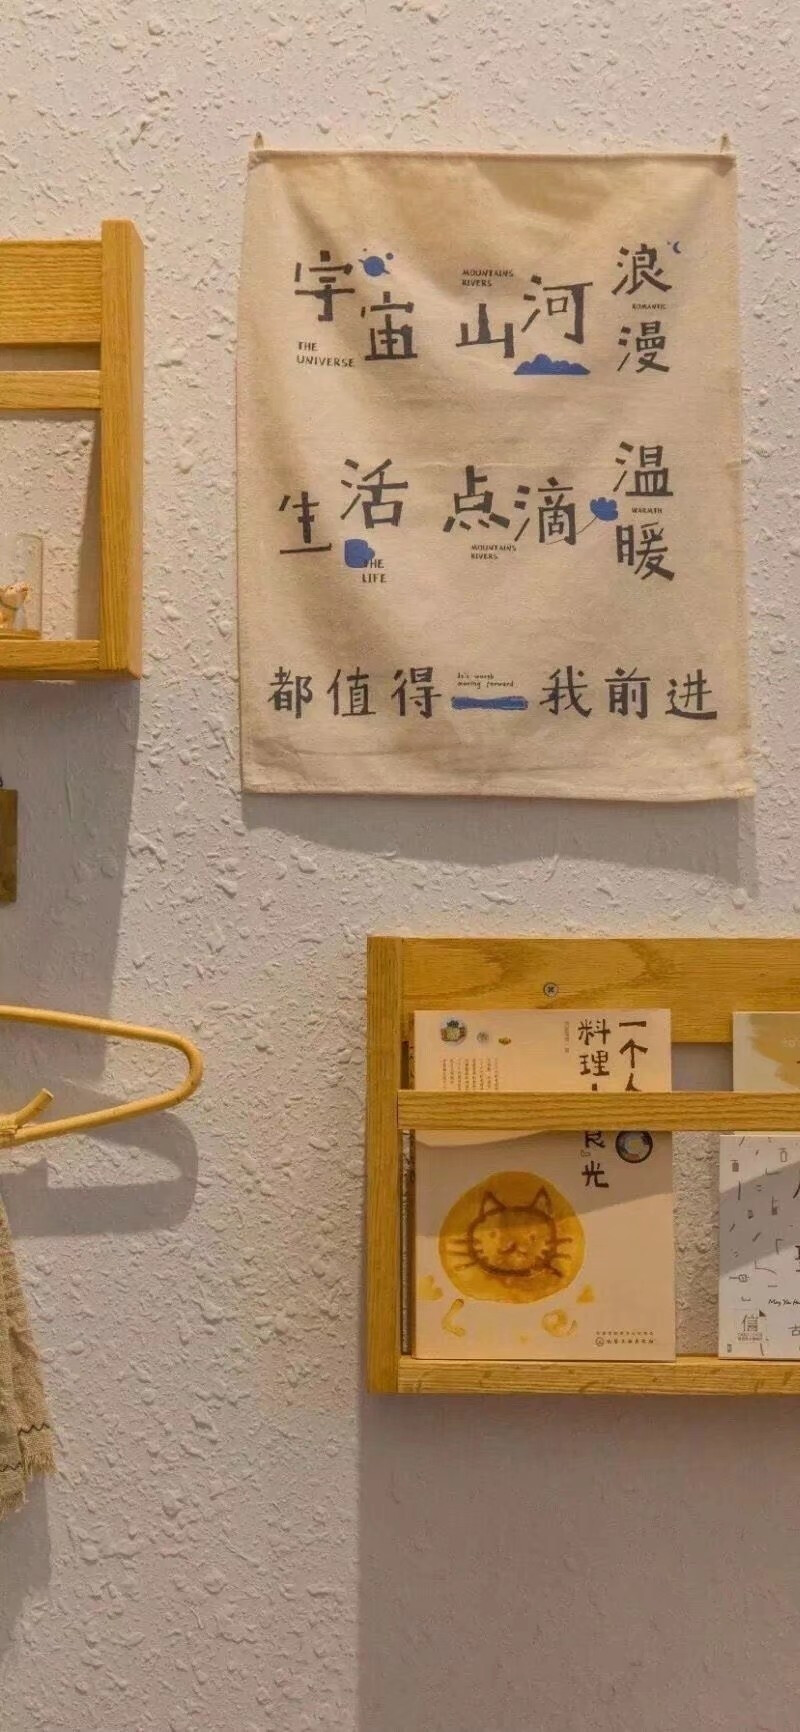 宇宙 山河 浪漫
THE UNIVERSE
MOUNTAINS RIVERS
ROMANTIC
生活 点滴 温暖
THE LIFE
MOUNTAINS RIVERS
WARMTH
都值得 我前进
it's worth
moving forward
一个人
料理
食光
信
古